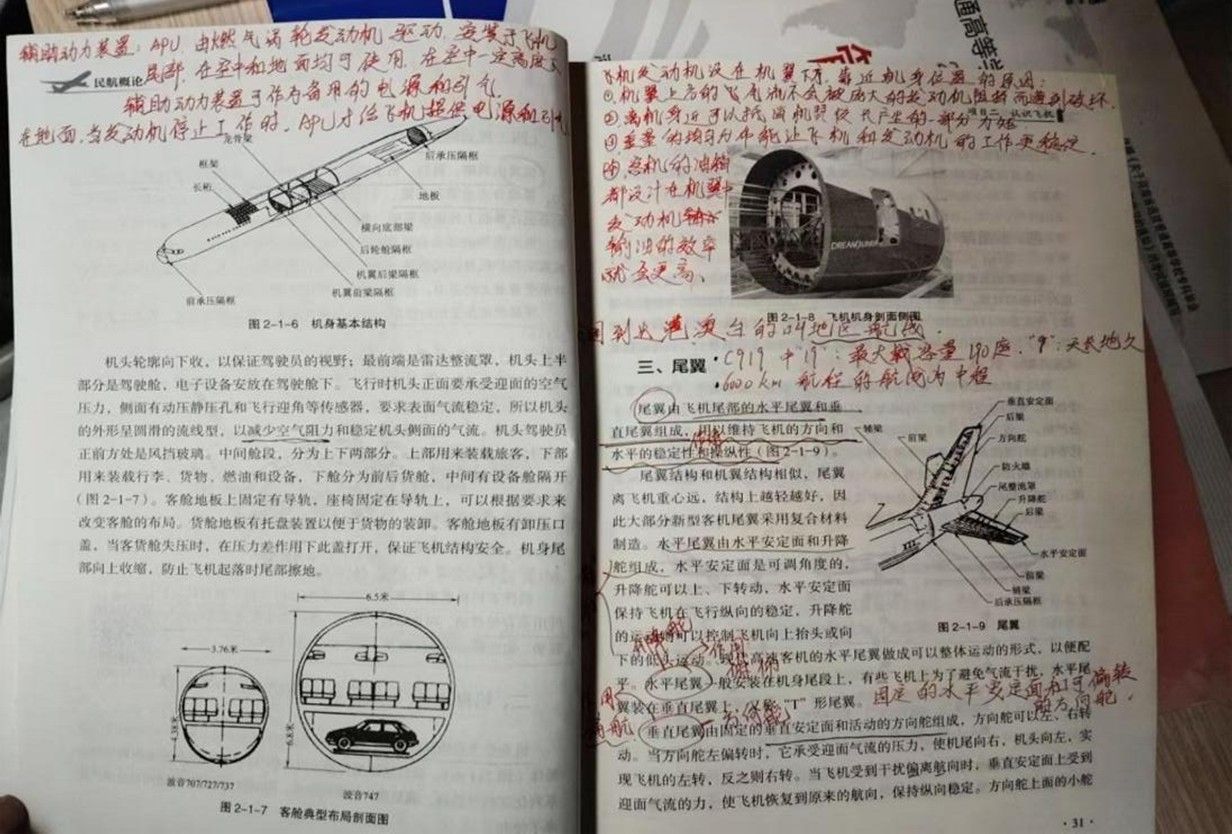 辅助动力装置：APU 由燃气涡轮发动机驱动，安装于飞机
尾部，在空中和地面均可使用，在空中一定高度
民航概论
辅助动力装置可作为备用的电源和引气
在地面，当发动机停止工作时，APU才给飞机提供电源和引气
龙骨梁
框架
长桁
后承压隔框
地板
横向底部梁
后轮舱隔框
机翼后梁隔框
机翼前梁隔框
前承压隔框
图 2-1-6 机身基本结构
机头轮廓向下收，以保证驾驶员的视野；最前端是雷达整流罩，机头上半
部分是驾驶舱，电子设备安放在驾驶舱下。飞行时机头正面要承受迎面的空气
压力，侧面有动压静压孔和飞行迎角等传感器，要求表面气流稳定，所以机头
的外形呈圆滑的流线型，以减少空气阻力和稳定机头侧面的气流。机头驾驶员
正前方处是风挡玻璃。中间舱段，分为上下两部分。上部用来装载旅客，下部
用来装载行李、货物、燃油和设备，下舱分为前后货舱，中间有设备舱隔开
(图 2-1-7)。客舱地板上固定有导轨，座椅固定在导轨上，可以根据要求来
改变客舱的布局。货舱地板有托盘装置以便于货物的装卸。客舱地板有卸压口
盖，当客货舱失压时，在压力差作用下此盖打开，保证飞机结构安全。机身尾
部向上收缩，防止飞机起落时尾部擦地。
6.5米
3.76米
6.8米
波音707/727/737
波音747
图 2-1-7 客舱典型布局剖面图
机发动机设在机翼下，靠近机身位置的原因：
①机翼上方的飞气流不会被庞大的发动机阻挡而遭到破坏.
②离机身近可以抗消机翼仅长产生的一部分力矩
项目二 认识飞机
③重量的均匀分布能让飞机和发动机的工作更稳定.
④客机的油箱
都设计在机翼中
发动机
输油的效率
就会更高、
DREAMLINER
图 2-1-8 飞机机身剖面侧图
国到达港澳台的叫地区航线.
三、尾翼
·C919 中"19"：最大载客量190座，"9"：天长地久
·6000km 航程的航线为中程
尾翼由飞机尾部的水平尾翼和垂
直尾翼组成，用以维持飞机的方向和
水平的稳定性和操纵性 (图 2-1-9)。
尾翼结构和机翼结构相似，尾翼
离飞机重心远，结构上越轻越好，因
此大部分新型客机尾翼采用复合材料
制造。水平尾翼由水平安定面和升降
舵组成，水平安定面是可调角度的，
升降舵可以上、下转动，水平安定面
保持飞机在飞行纵向的稳定，升降舵
的运动则可以控制飞机向上抬头或向
下的低头运动。现代高速客机的水平尾翼做成可以整体运动的形式，以便配
平。水平尾翼一般安装在机身尾段上，有些飞机上为了避免气流干扰，水平尾
翼装在垂直尾翼上，"T"形尾翼。
固定的水平安定面和可偏转
的方向舵.
垂直尾翼由固定的垂直安定面和活动的方向舵组成，方向舵可以左、右转
动。当方向舵左偏转时，它承受迎面气流的压力，使机尾向右，机头向左，实
现飞机的左转，反之则右转。当飞机受到干扰偏离航向时，垂直安定面上受到
迎面气流的力，使飞机恢复到原来的航向，保持纵向稳定。方向舵上面的小舵
垂直安定面
后梁
方向舵
辅梁
前梁
防火墙
尾整流罩
升降舵
后梁
水平安定面
前梁
辅梁
后承压隔框
图 2-1-9 尾翼
· 31 ·